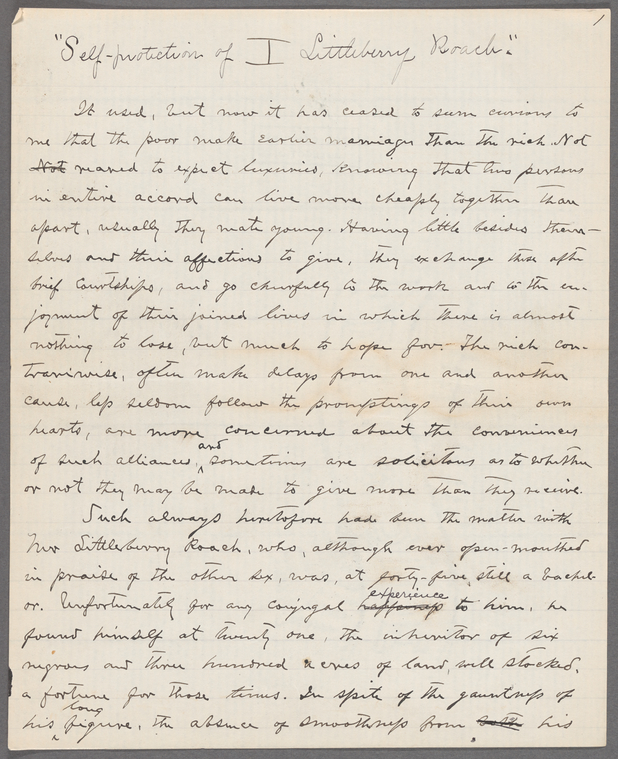 1
"Self-protection of I Littleberry Roach."
It used, but now it has ceased to seem curious to
me that the poor make earlier marriages than the rich. Not
Not reared to expect luxuries, knowing that two persons
in entire accord can live more cheaply together than
apart, usually they mate young. Having little besides them-
selves and their affections to give, they exchange these after
brief courtships, and go cheerfully to the work and to the en-
joyment of their joined lives in which there is almost
nothing to lose, but much to hope for. The rich con-
trariwise, often make delays from one and another
cause, less seldom follow the promptings of their own
hearts, are more concerned about the conveniences
of such alliances, and sometimes are solicitous as to whether
or not they may be made to give more than they receive.
Such always heretofore had been the matter with
Mr Littleberry Roach, who, although ever open-mouthed
in praise of the other sex, was, at forty-five, still a bachel-
or. Unfortunately for any conjugal experience to him, he
found himself at twenty one, the inheritor of six
negroes and three hundred acres of land, well stocked,
a fortune for those times. In spite of the gauntness of
his long figure, the absence of smoothness from both his